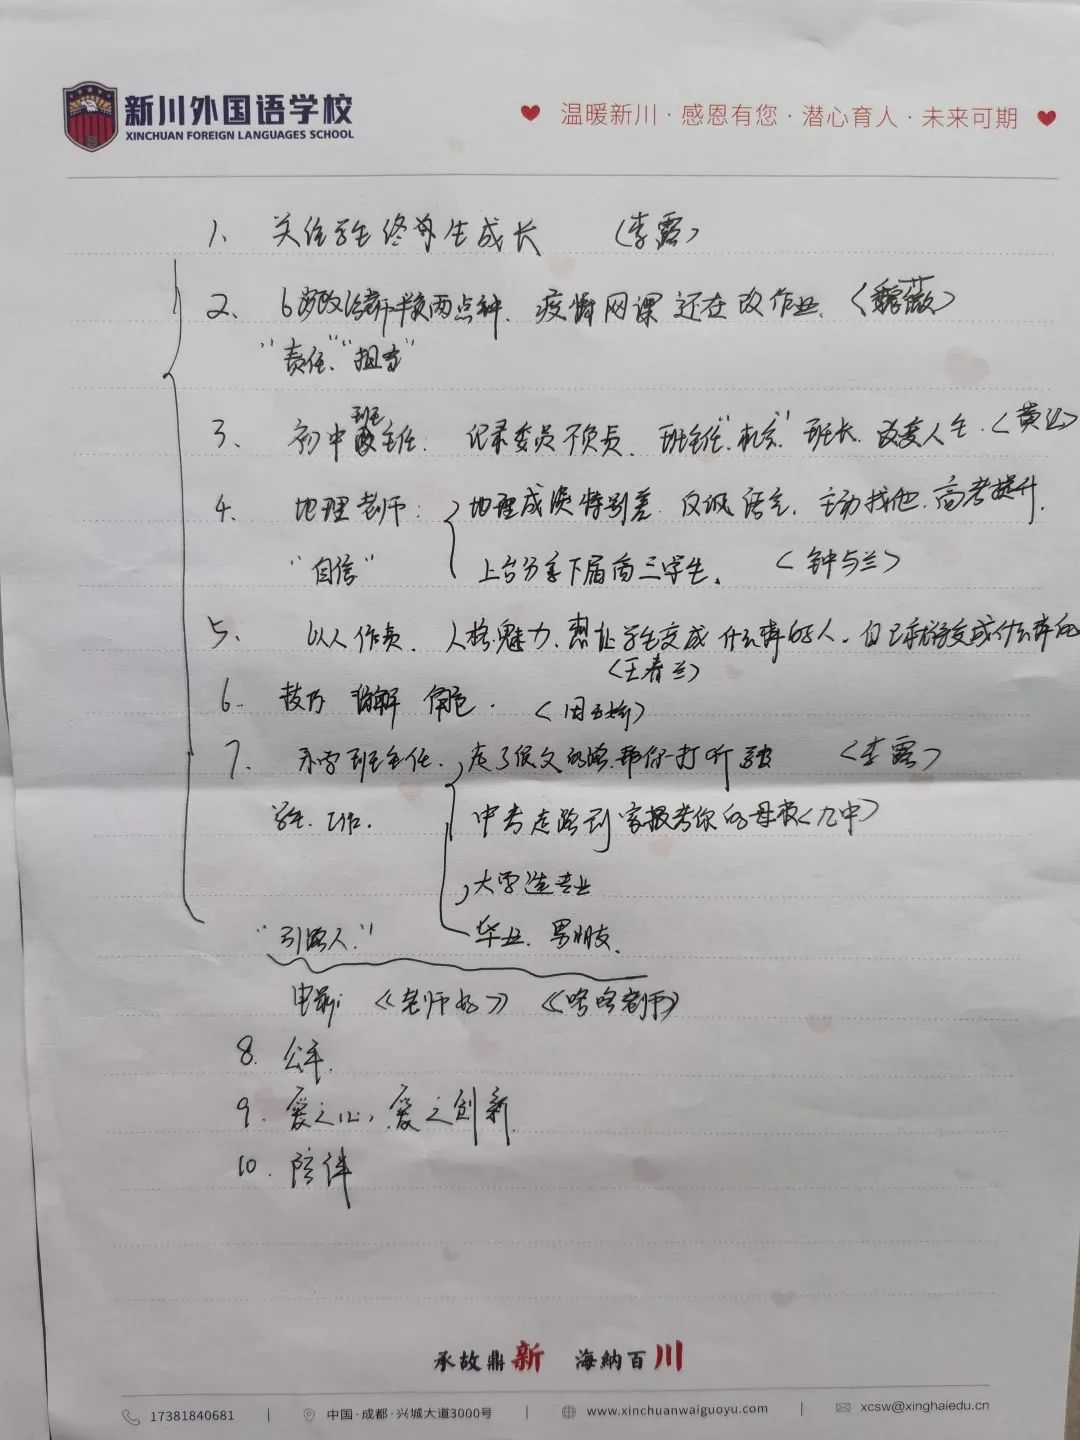 新川外国语学校
XINCHUAN FOREIGN LANGUAGES SCHOOL
温暖新川·感恩有您·潜心育人·未来可期
1、关注学生终身生成长 (李露)
2、政治老师半夜两点钟、疫情网课还在改作业、<魏薇>
“责任”“担当”
3、初中班主任: 记录委员不负责、班主任“机会”班长、改变人生.
4、地理老师: 地理成绩特别差、反讽语言、主动找他、高考提升.
“自信” 上台分享下届高三学生、 <钟与兰>
5、以人作责、人格魅力、想让学生变成什么样的人、自己就该变成什么样的
<王春兰>
6. 技巧 角色.
7、小学班主任、走了很久的路、帮你打听
学生、 中考走路到家报考你的母校<九中> <李露>
大学选专业
“引路人.” 毕业、男朋友、
电影: 《老师好》《嗝嗝老师》
8. 公平.
9. 爱之心, 爱之创新.
10. 陪伴
承故鼎新 海纳百川
17381840681 | 中国·成都·兴城大道3000号 | www.xinchuanwaiguoyu.com | xcsw@xinghaiedu.cn